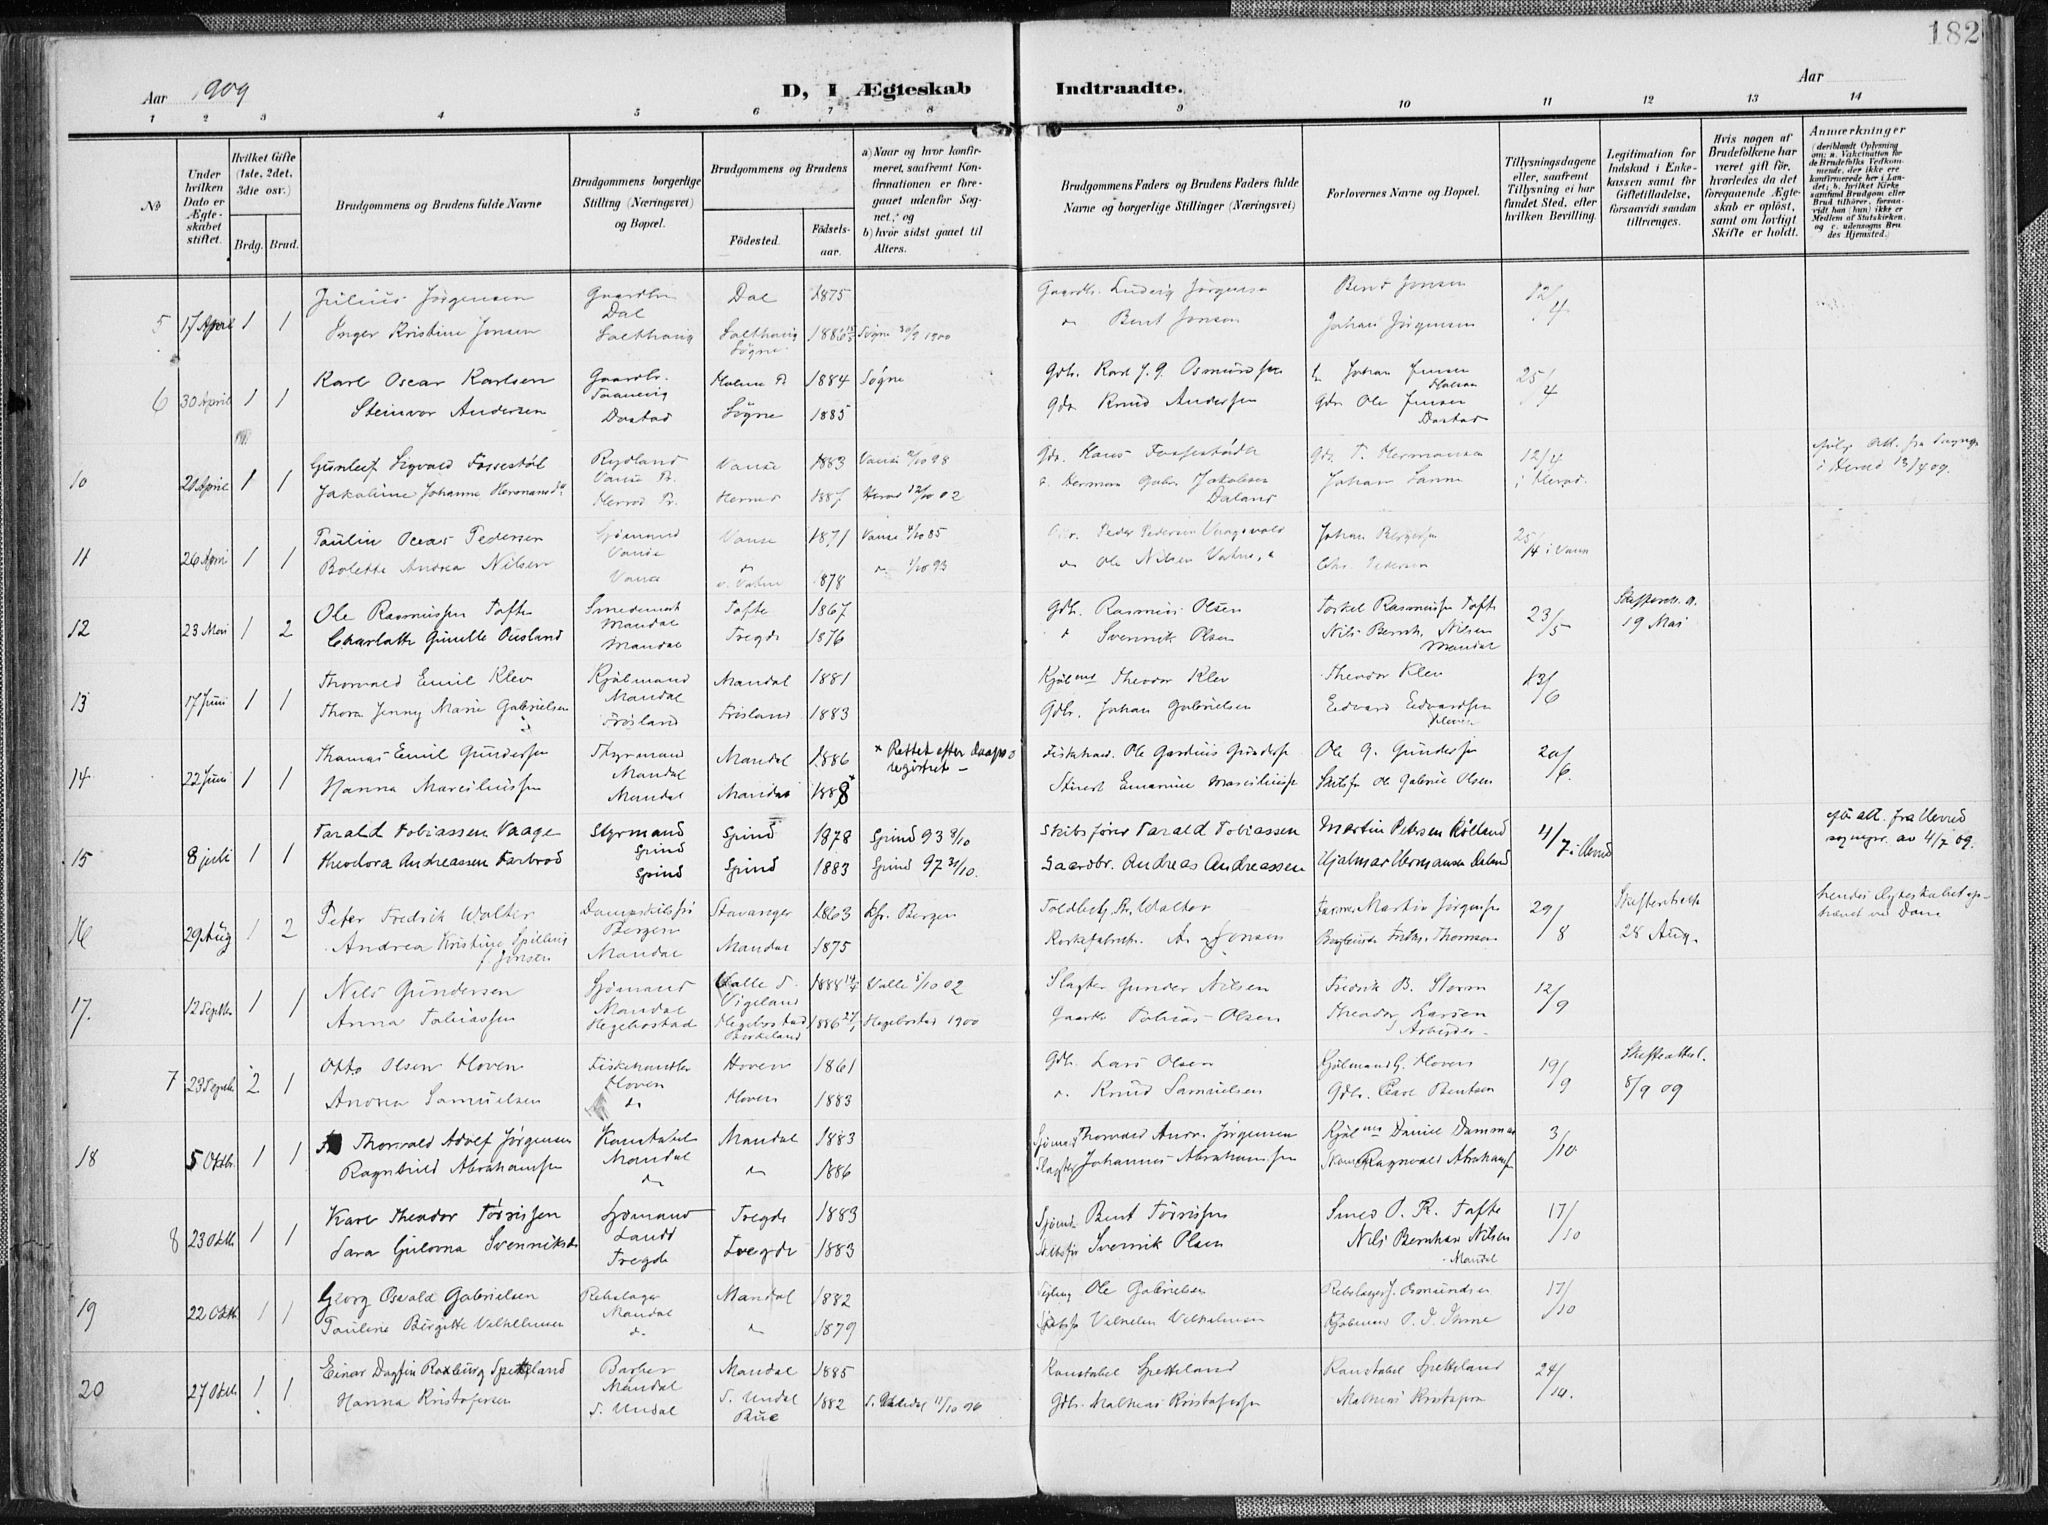 182
Aar 1909
D, I Ægteskab Indtraadte.
Aar
1 2 3 4 5 6 7 8 9 10 11 12 13 14
No
Under hvilken Dato er Ægteskabet stiftet.
Hvilket Gifte (1ste, 2det, 3die osv.)
Brdg. Brud.
Brudgommens og Brudens fulde Navne
Brudgommens borgerlige Stilling (Næringsvei) og Bopæl.
Brudgommens og Brudens
Fødested.
Fødselsaar.
a) Naar og hvor konfirmeret, saafremt Konfirmationen er foregaaet udenfor Sognet; og
b) hvor sidst gaaet til Alters.
Brudgommens Faders og Brudens Faders fulde Navne og borgerlige Stillinger (Næringsvei)
Forlovernes Navne og Bopæl.
Tillysningsdagene eller, saafremt Tillysning ei har fundet Sted, efter hvilken Bevilling.
Legitimation for Indskud i Enkekassen samt for Giftetilladelse, forsaavidt saadan tiltrænges.
Hvis nogen af Brudefolkene har været gift før, hvorledes da det foregaaende Ægteskab er opløst, samt om lovligt Skifte er holdt.
Anmærkninger (deriblandt Oplysning om: a. Vakcination for de Brudefolks Vedkommende, der ikke ere konfirmerede her i Landet; b. hvilket Kirkesamfund Brudgom eller Brud tilhører, forsaavidt han (hun) ikke er Medlem af Statskirken, og c. udensogns Brudes Hjemsted.)
5 17 April 1 1 Julius Jørgensen Gaardbr. Dal Dal 1875 Gaardb. Ludvig Jørgensen Bent Jensen 12/4
Inger Kristine Jensen Salthavig Salthavig Søgne 1886 Søgne 30/9 1900 Bent Jensen Johan Jørgensen
6 30 April 1 1 Karl Oscar Karlsen Gaardbr. 1884 Søgne Gdb. Karl J. G. Osmundsen Johan Jensen 25/4
Steinvor Andersen Dastad Søgne 1885 Gdb. Knud Andersen Gdb. Ole Jensen Dastad
10 21 April 1 1 Gunleif Sigvald Fossestøl Rydland Vanse P. Vanse 1883 Vanse /10 98 Gdb. Hans Gdb. T. Hermansen 12/4 i Herad.
Jakobine Johanne Hermansd. Herred P. Herred 1887 Herad 12/10 02 Herman Gabr. Jakobsen Daland Johan Sanne
i Herad 13/4 09.
11 26 April 1 1 Paulin Oceas Pedersen Sjømand Vanse Vanse 1871 Vanse 4/10 85 Peder Pedersen Johan Bergersen 25/4 i Vanse
Bolette Andrea Nilsen Vanse 1878 1/10 93 Ole Nilsen Vatne Chr. Pedersen
12 23 Mai 1 2 Ole Rasmussen Tofte Smedemest. Mandal Tofte 1867 Gdb. Rasmus Olsen Torkel Rasmussen Tofte 23/5 19 Mai
Charlotte Gunille Ousland Mandal Tregde 1876 Svennik Olsen Nils Bernh. Nilsen Mandal
13 17 Juni 1 1 Thorvald Emil Klev Kjølmand Mandal Mandal 1881 Kjølmd Theodor Klev Theodor Klev 13/6
Thora Jenny Marie Gabrielsen Frøsland Frøsland 1883 Gdb. Johan Gabrielsen Edvard Edvardsen
14 22 Juni 1 1 Thomas Emil Gundersen Styrmand Mandal Mandal 1886 * Rettet efter daapsregistret — Fiskehand. Ole Gardius Gundersen Ole G. Gundersen 20/6.
Hanna Marcelliussen Mandal Mandal 1888* Ole Gabriel Olsen
15 8 juli 1 1 Tarald Tobiassen Vaage Styrmand Spind Spind 1878 Spind 93 8/10 Skibsfører Tarald Tobiassen Martin Petersen Rølland 4/7 i Herred
Theodora Andreassen Farbrod Spind Spind 1883 Spind 97 31/10. Gaardbr. Andreas Andreassen Hjalmar Hermansen Daland
efter att. fra Herred sognepr. av 4/7 09.
16 29 Aug 1 2 Peter Fredrik Walter Bergen Stavanger 1863 Bergen Toldbetj. Walter Martin Jørgensen 29/8 28 Aug.
Andrea Kristine Spilling f. Jonsen Mandal Mandal 1875 A. Jonsen Thomsen
17. 12 Septbr 1 1 Nils Gundersen Sjømand Mandal Valle S. Vigeland 1888 Valle 5/10 02 Slagter Gunder Nilsen Fredrik B. Storm 12/9
Anna Tobiassen Hegebostad Hegebostad Birkeland 1886 Hegebostad 1900 Gaardb. Tobias Olsen Theodor Larsen Arbeider
7 23 Septbr 2 1 Otto Olsen Hoven Fiskehandler Hoven Hoven 1861 Gdb. Lars Olsen Kjølmand G. Hoven 19/9 Skifteattest. 8/9 09
Andrea Samuelsen Hoven 1883 Knud Samuelsen Gdb. Carl Bentsen
18 5 Oktbr. 1 1 Thorvald Adolf Jørgensen Konstabel Mandal Mandal 1883 Sjømd Thorvald Andr. Jørgensen Kjølmd Daniel Damman 3/10
Ragnhild Abrahamsen 1886 Slagter Johannes Abrahamsen Ragnvald Abrahamsen
8 23 Oktb 1 1 Karl Theodor Tørrissen Sjømand Tregde 1883 Sjømd. Bent Tørrissen Smed O. R. Tofte 17/10
Sara Gulovna Svenniksen Tregde Tregde 1883 Svennik Olsen Nils Bernhard Nilsen Mandal
19 22 Oktb 1 1 Georg Osvald Gabrielsen Rebslager Mandal Mandal 1882 Ole Gabrielsen Rebslager J. Osmundsen 17/10
Pauline Birgitte Vilhelmsen 1879 Vilhelm Vilhelmsen
20 27 Oktb 1 1 Einar Dagfin Roxburg Spetteland Barber Mandal Mandal 1885 Konstabel Spetteland Konstabel Spetteland 24/10.
Hanna Kristofersen S. Undal S. Undal Bue 1882 S. Undal 11/10 96 Gdb. Mathias Kristofersen Mathias Kristofersen